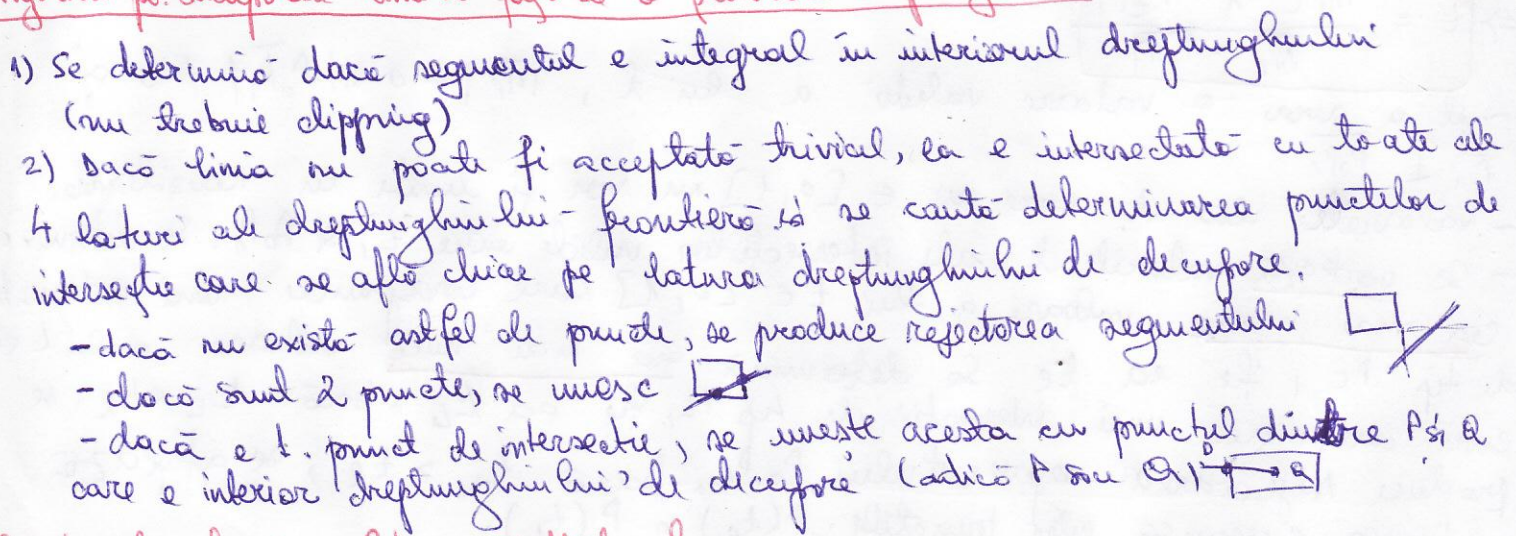 1) Se determină dacă segmentul e integral în interiorul dreptunghiului
(nu trebuie clipping)
2) Dacă linia nu poate fi acceptată trivial, ea e intersectată cu toate cele
4 laturi ale dreptunghiului-frontieră și se caută determinarea punctelor de
intersecție care se află chiar pe latura dreptunghiului de decupare.
- dacă nu există astfel de puncte, se produce rejectarea segmentului
- dacă sunt 2 puncte, se unesc
- dacă e 1. punct de intersecție, se unește acesta cu punctul dintre P și Q
care e interior dreptunghiului de decupare (adică P sau Q)